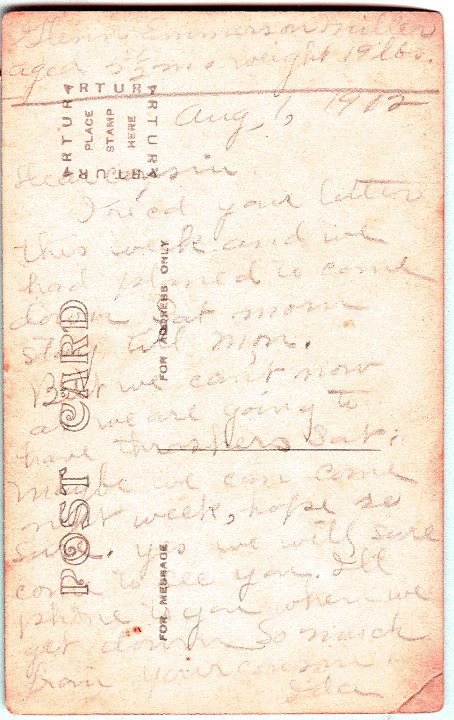 Glenn Emmerson Miller
aged 5½ mo weight 19 lbs.
Aug 1, 1912
Dear Cousin.
I recd your letter
this week and we
had planed to come
down Sat morn
stay till Mon.
But we can't now
as we are going to
have thrashers Sat;
Maybe we can come
next week, hope so
sure. yes we will sure
come to see you. I'll
phone to you when we
get down So much
from your cousin
Ida
ARTURA ARTURA ARTURA ARTURA
PLACE
STAMP
HERE
POST CARD
FOR ADDRESS ONLY
FOR MESSAGE